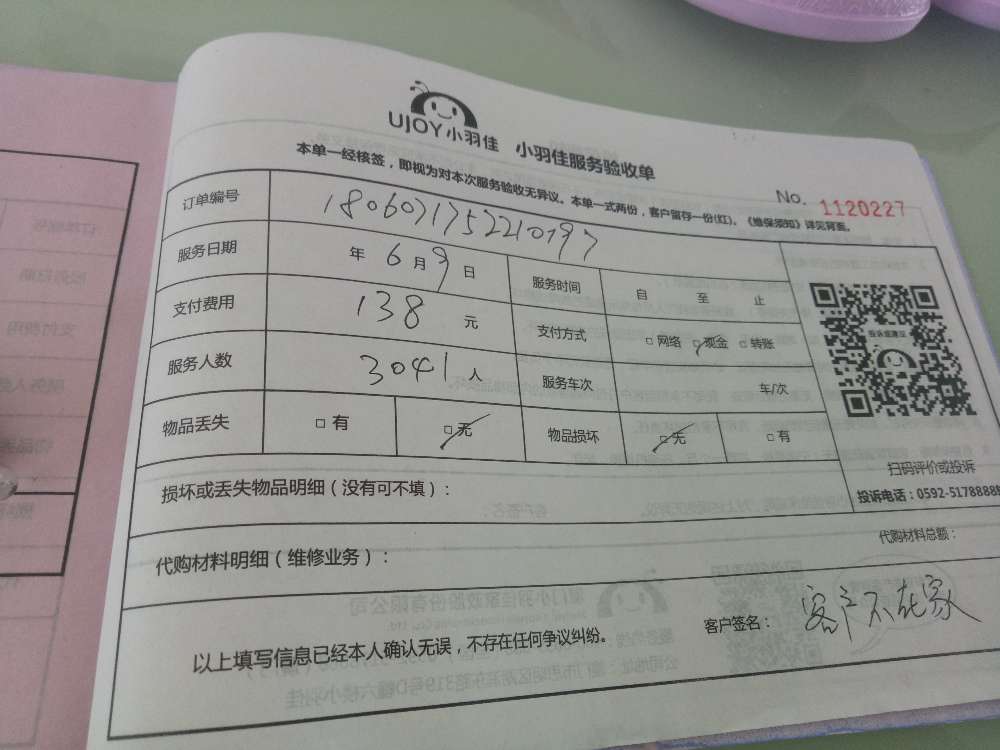 UJOY小羽佳 小羽佳服务验收单
本单一经核签，即视为对本次服务验收无异议。本单一式两份，客户留存一份(红)。《维保须知》详见背面。
No. 1120227
订单编号 1806071752210197
服务日期 年 6 月 9 日 服务时间 自 至 止
支付费用 138 元 支付方式 □ 网络 □ 现金 □ 转账
服务人数 3041 人 服务车次 车/次
物品丢失 □ 有 □ 无 物品损坏 □ 无 □ 有
投诉或建议
扫码评价或投诉
投诉电话：0592-5178888
损坏或丢失物品明细（没有可不填）：
代购材料明细（维修业务）： 代购材料总额：
以上填写信息已经本人确认无误，不存在任何争议纠纷。 客户签名： 客户不在家